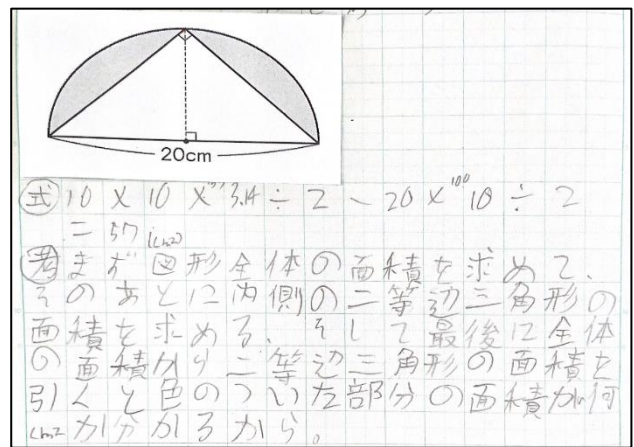 20cm
式 10×10×3.14÷2-20×10÷2
=57(cm2)
考 まず図形全体の面積を求めて、
そのあとに内側の二等辺三角形の
面積を求める。そして最後に全体
の面積から二等辺三角形の面積を
引くと色のついた部分の面積が何
cm2か分かるから。